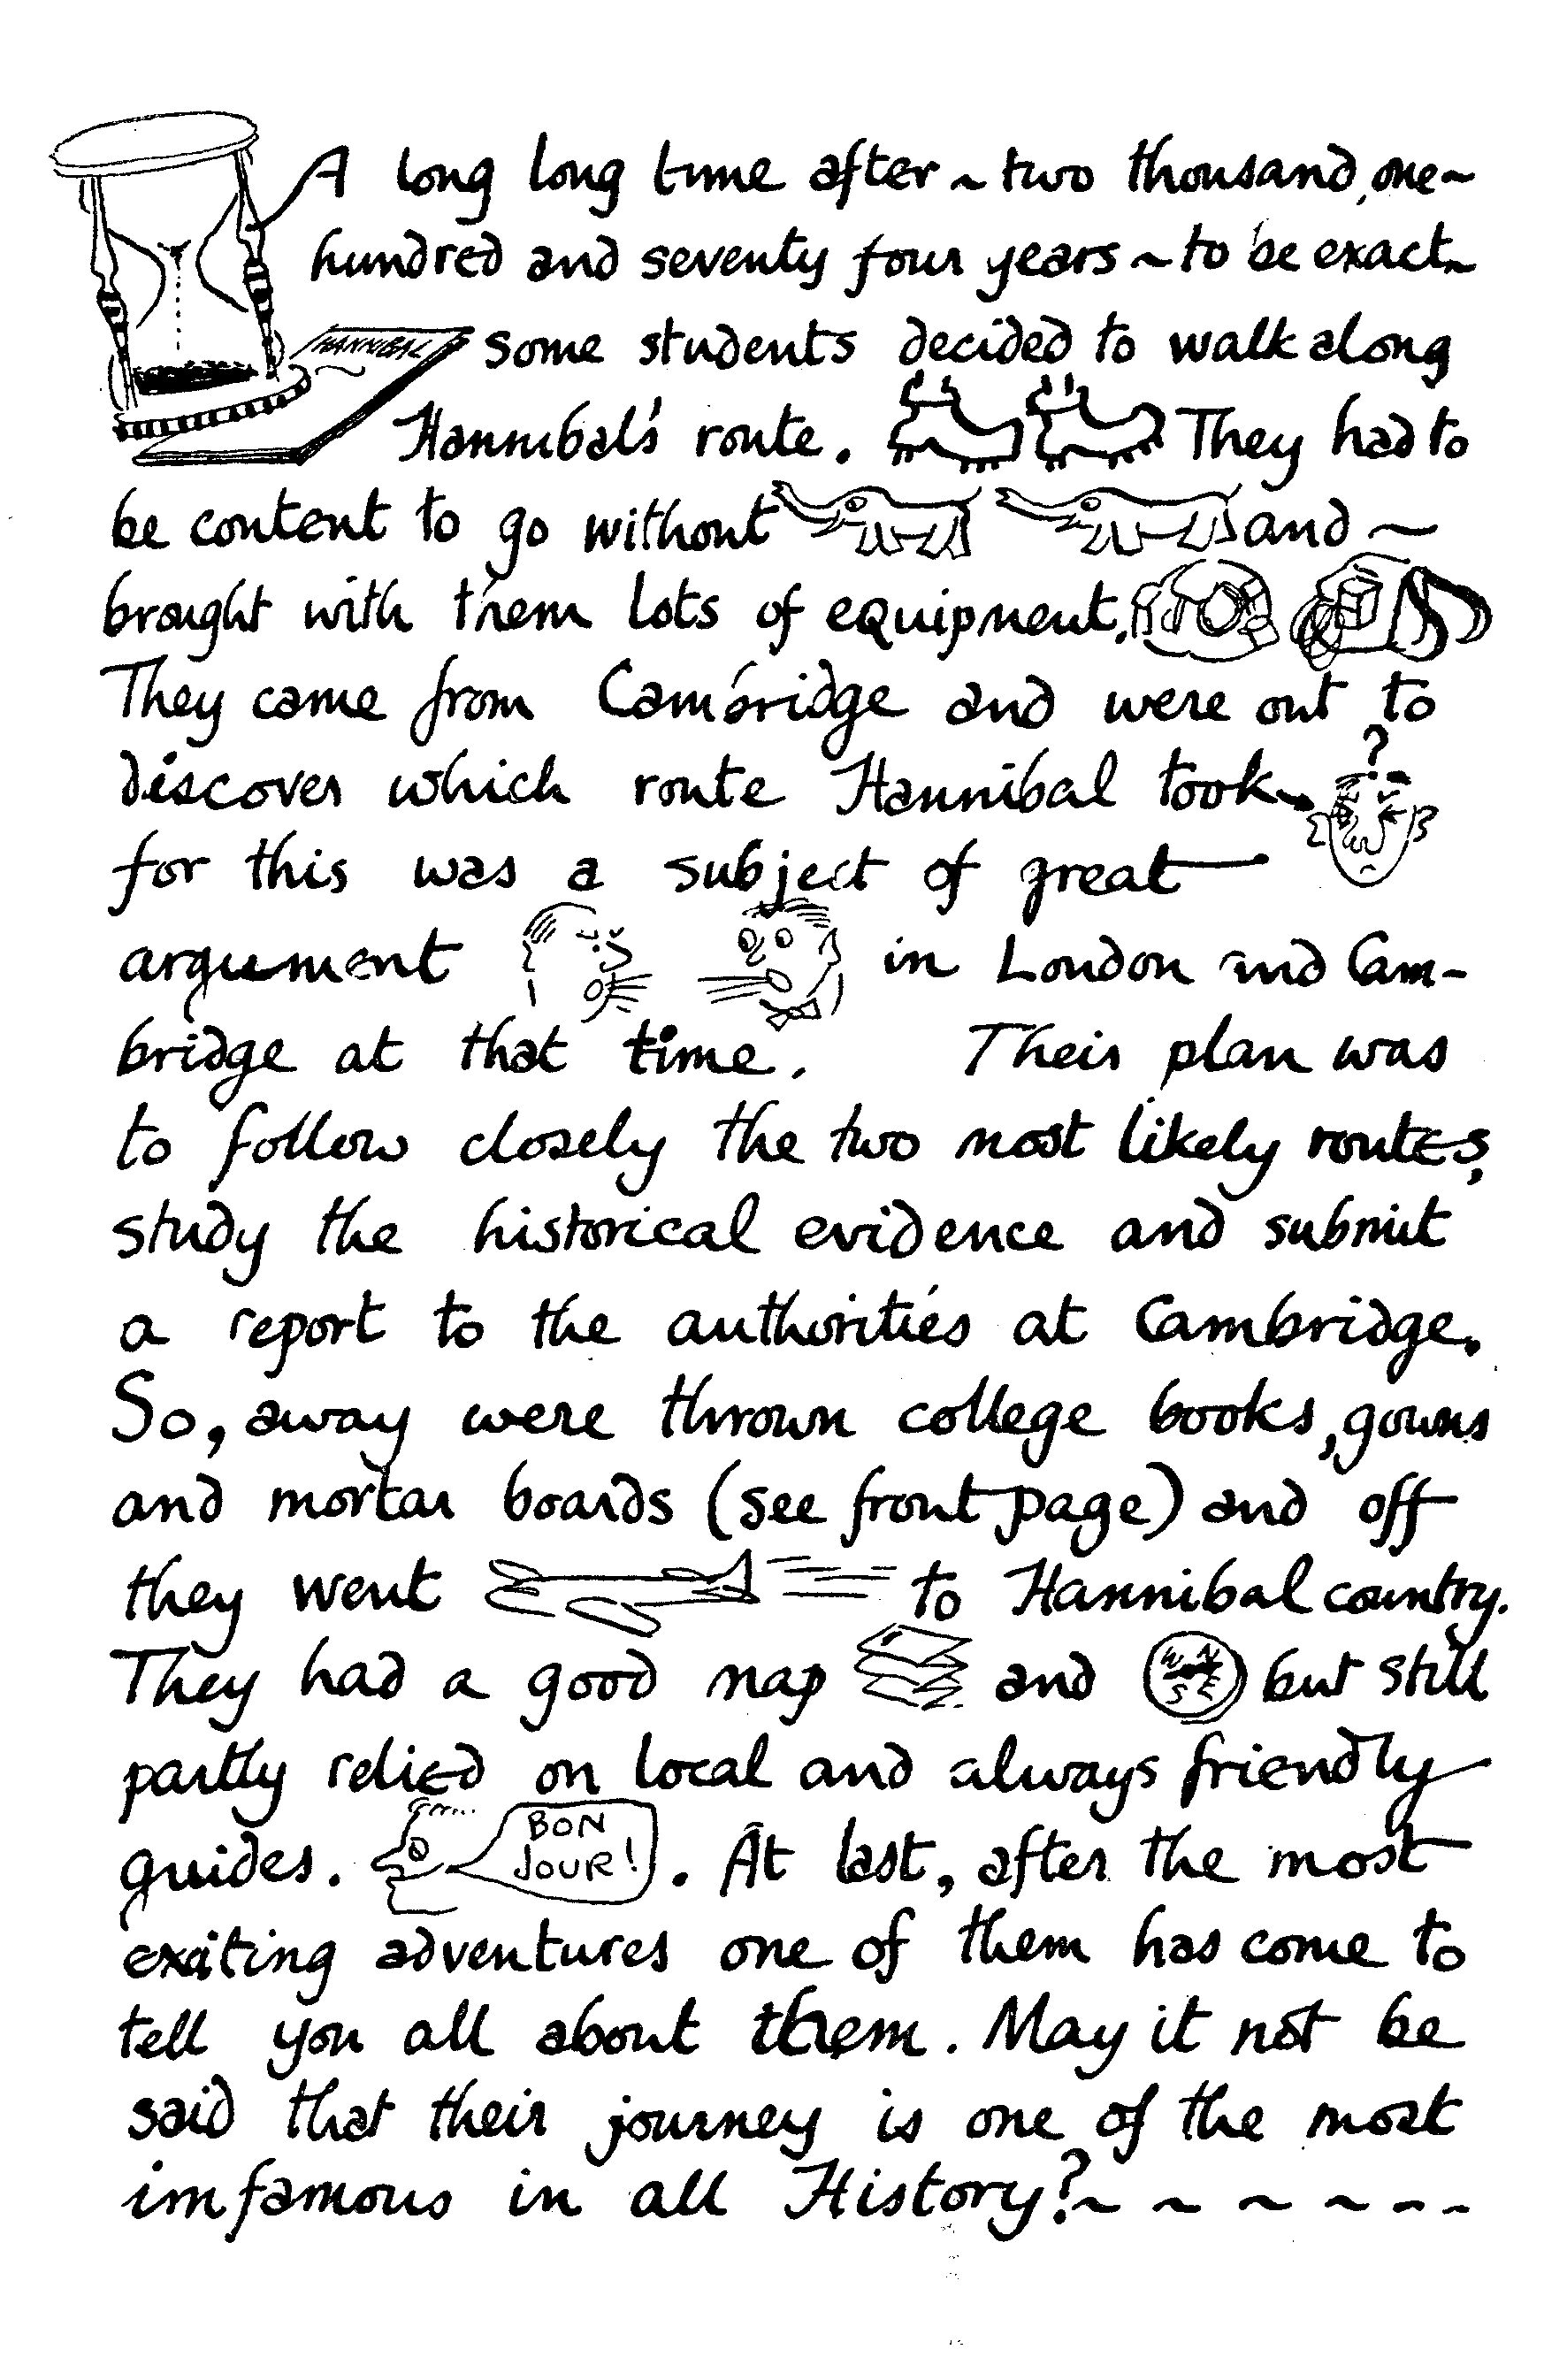 A long long time after ~ two thousand, one~
hundred and seventy four years ~ to be exact~
HANNIBAL
some students decided to walk along
Hannibal's route. They had to
be content to go without and ~
brought with them lots of equipment.
They came from Cambridge and were out to
?
discover which route Hannibal took
for this was a subject of great
argument in London and Cam-
bridge at that time. Their plan was
to follow closely the two most likely routes,
study the historical evidence and submit
a report to the authorities at Cambridge.
So, away were thrown college books, gowns
and mortar boards (see front page) and off
they went to Hannibal country.
They had a good map and W N S E but still
partly relied on local and always friendly
guides. BON JOUR! . At last, after the most
exciting adventures one of them has come to
tell you all about them. May it not be
said that their journey is one of the most
imfamous in all History? ~ ~ ~ ~ - -